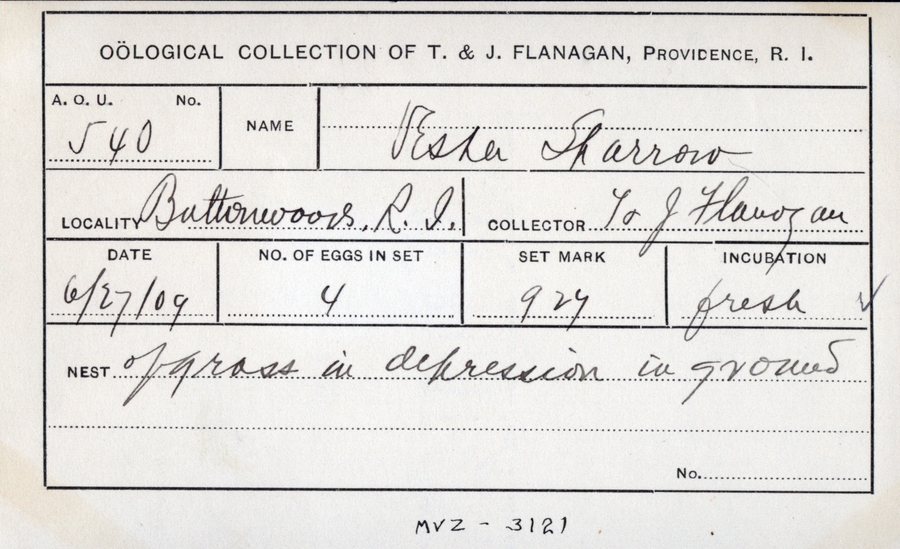 OÖLOGICAL COLLECTION OF T. & J. FLANAGAN, PROVIDENCE, R. I.
A. O. U. No. 540
NAME Vesper Sparrow
LOCALITY Buttonwoods, R. I. COLLECTOR J Flanagan
DATE NO. OF EGGS IN SET SET MARK INCUBATION
6/27/09 4 927 fresh ✓
NEST of grass in depression in ground
No.
MVZ - 3121